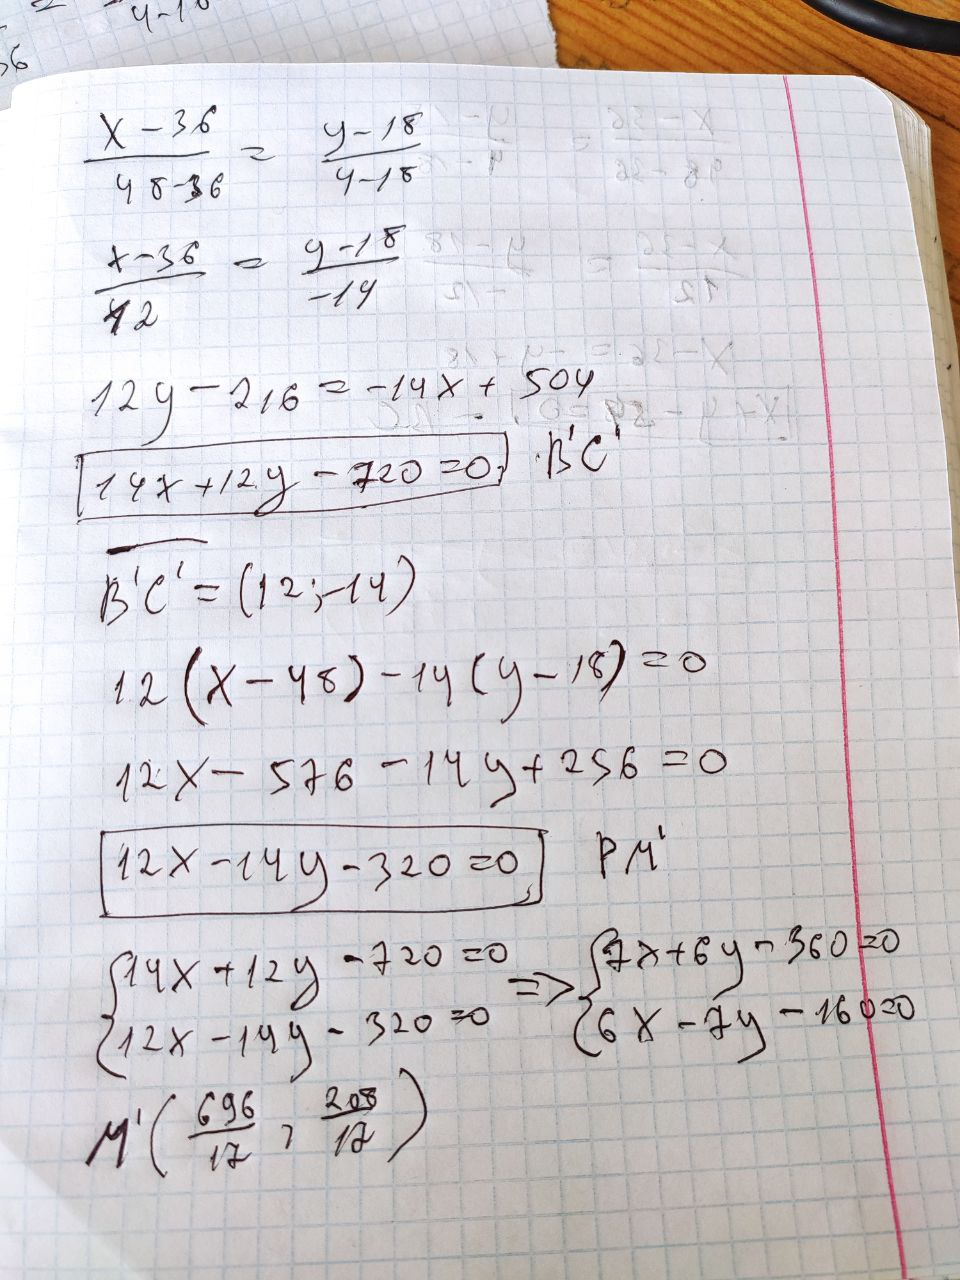 4-18
36
x-36/48-36 = y-18/4-18
x-36/12 = y-18/-14
12y-216=-14x+504
14x+12y-720=0, B'C'
B'C'=(12;-14)
12(x-48)-14(y-18)=0
12x-576-14y+256=0
12x-14y-320=0, PM'
{14x+12y-720=0 => {7x+6y-360=0
{12x-14y-320=0 {6x-7y-160=0
M'(696/17, 208/17)